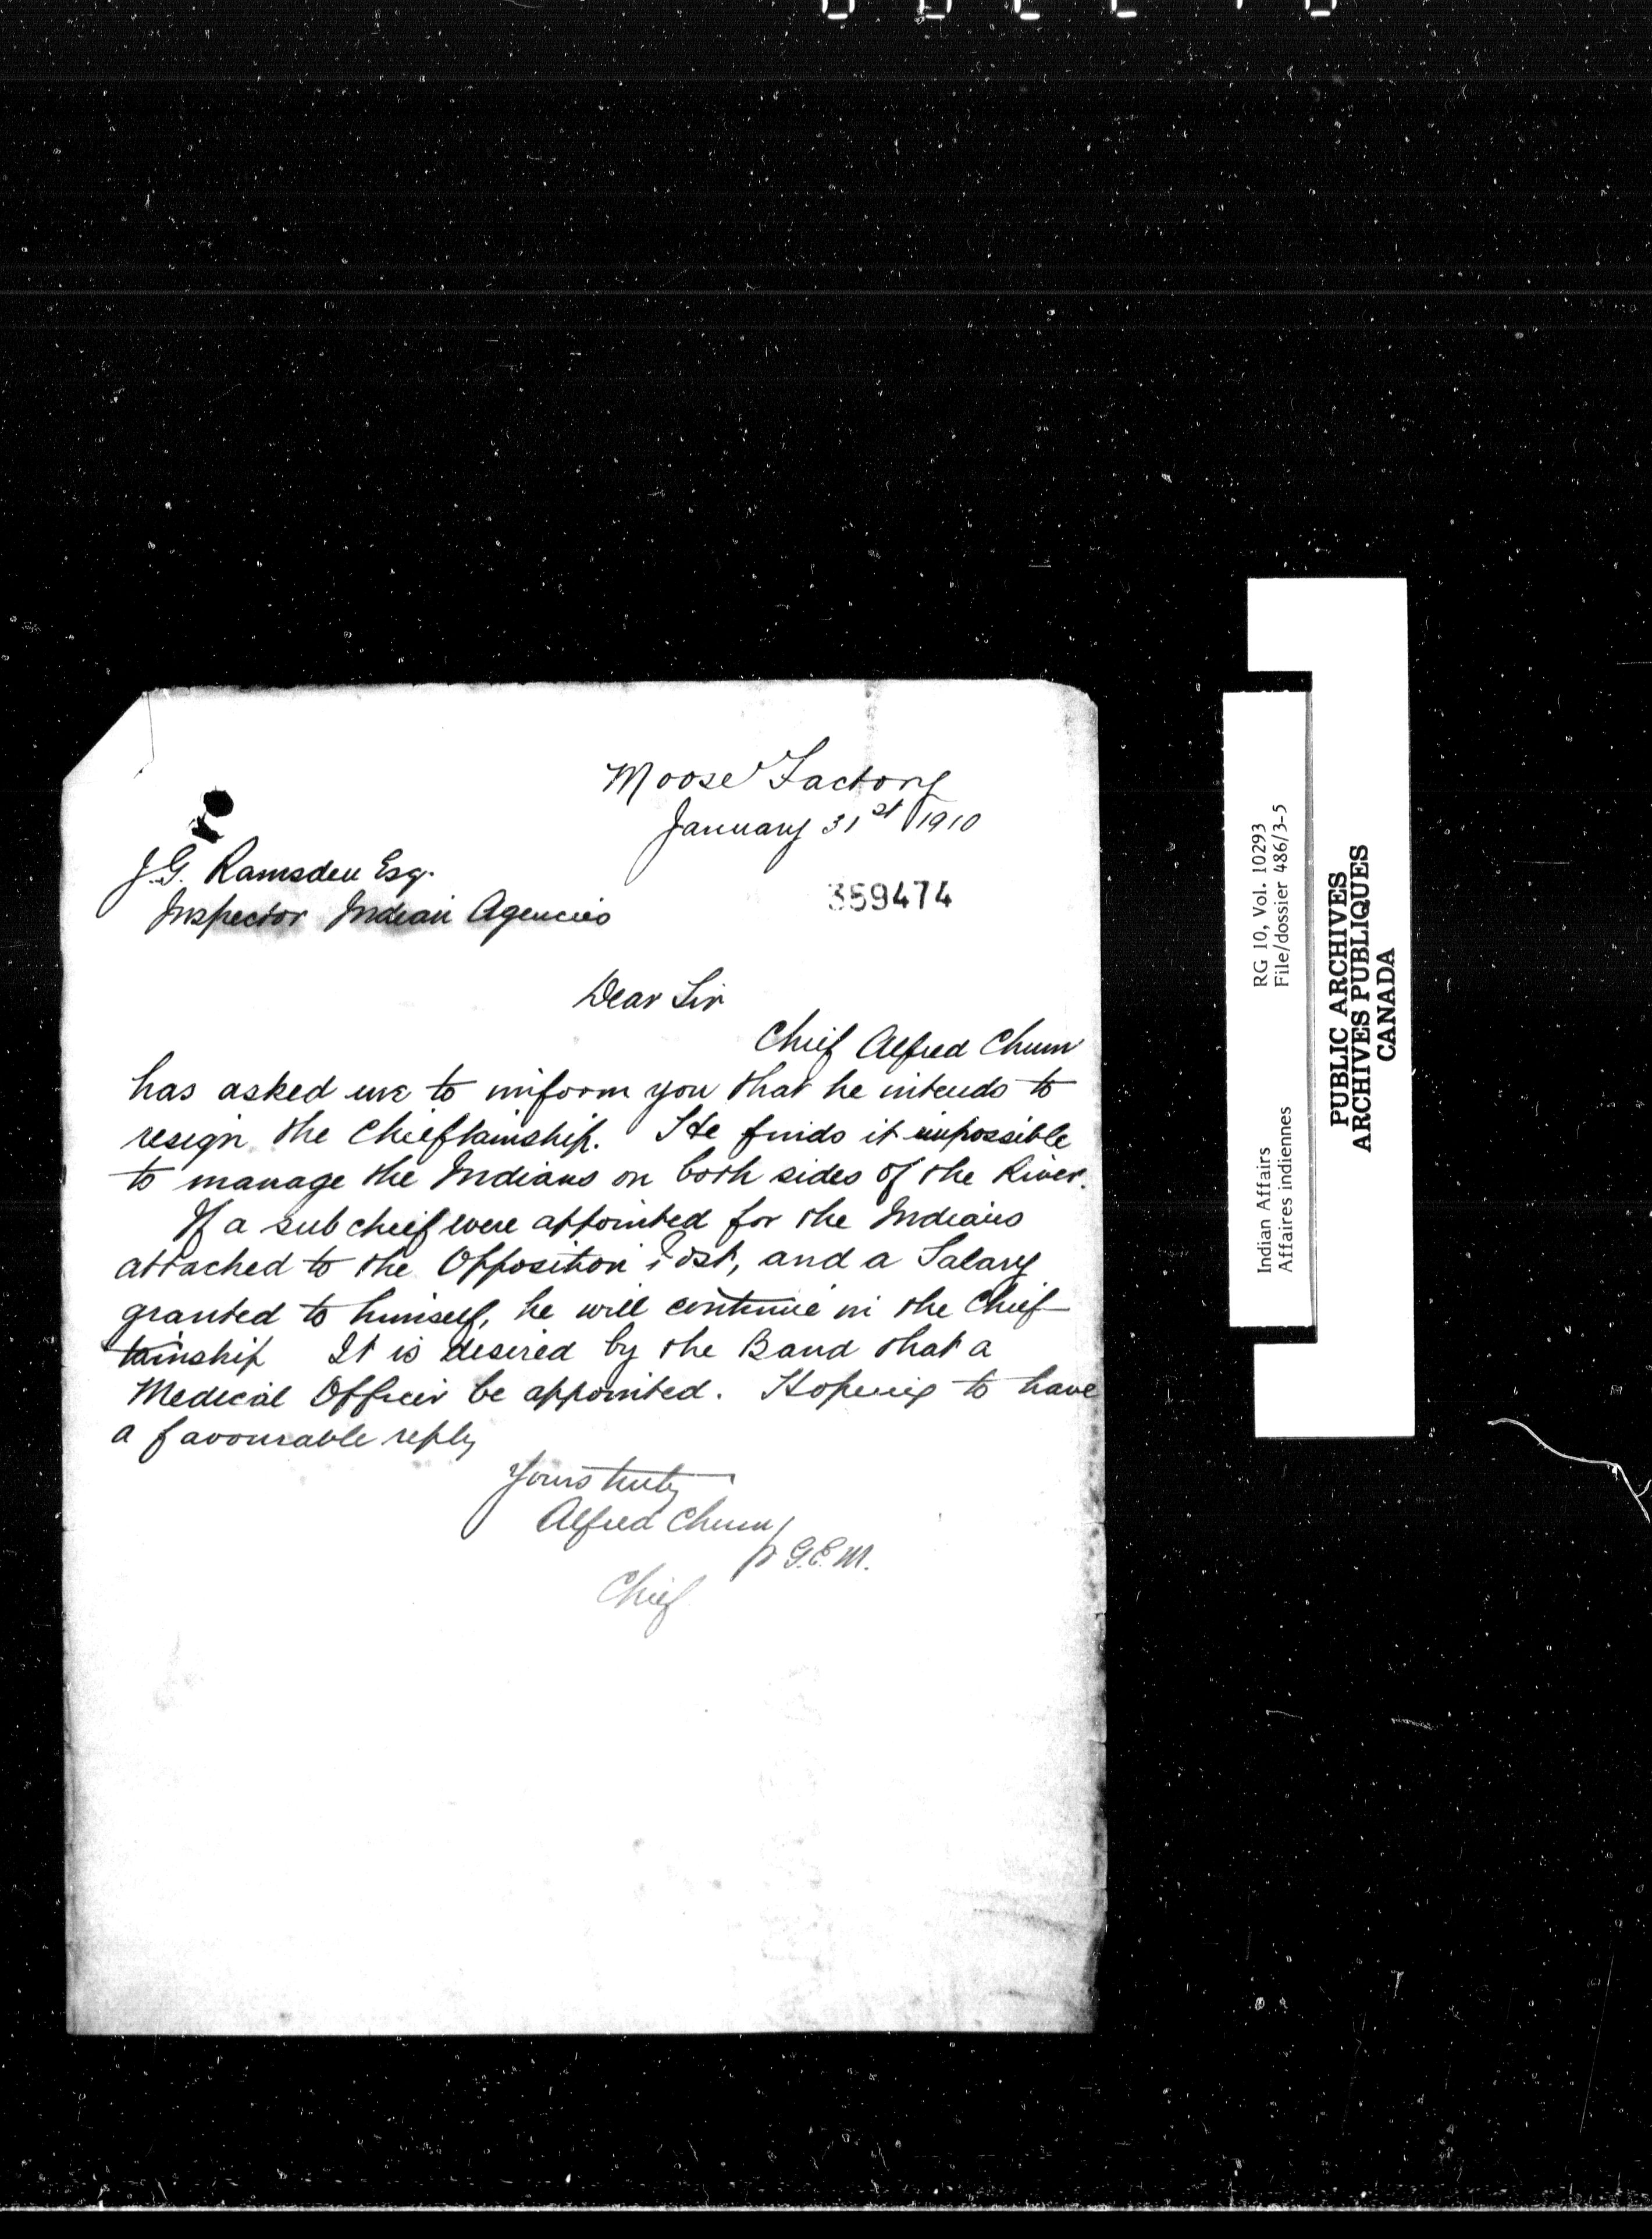 Moose Factory
January 31st 1910
J.G. Ramsden Esq.
Inspector Indian Agencies
359474
Dear Sir
Chief Alfred Chum
has asked me to inform you that he intends to
resign the Chieftainship. He finds it impossible
to manage the Indians on both sides of the River.
If a sub chief were appointed for the Indians
attached to the Opposition Post, and a Salary
granted to himself, he will continue in the Chief-
tainship It is desired by the Band that a
Medical Officer be appointed. Hoping to have
a favourable reply
Yours truly
Alfred Chum
p G.E.M.
Chief
Indian Affairs RG 10, Vol. 10293
Affaires indiennes File/dossier 486/3-5
PUBLIC ARCHIVES
ARCHIVES PUBLIQUES
CANADA